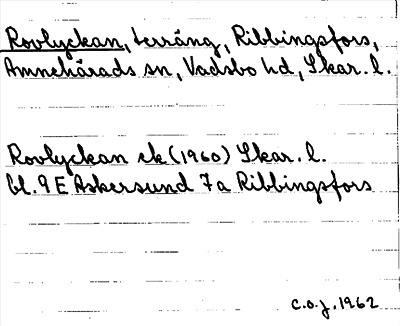 Rovlyckan, terräng, Ribbingsfors,
Amnehärads sn, Vadsbo hd, Skar. l.
Rovlyckan ek (1960) Skar. l.
bl. 9 E Askersund 7a Ribbingsfors
C.O.J. 1962